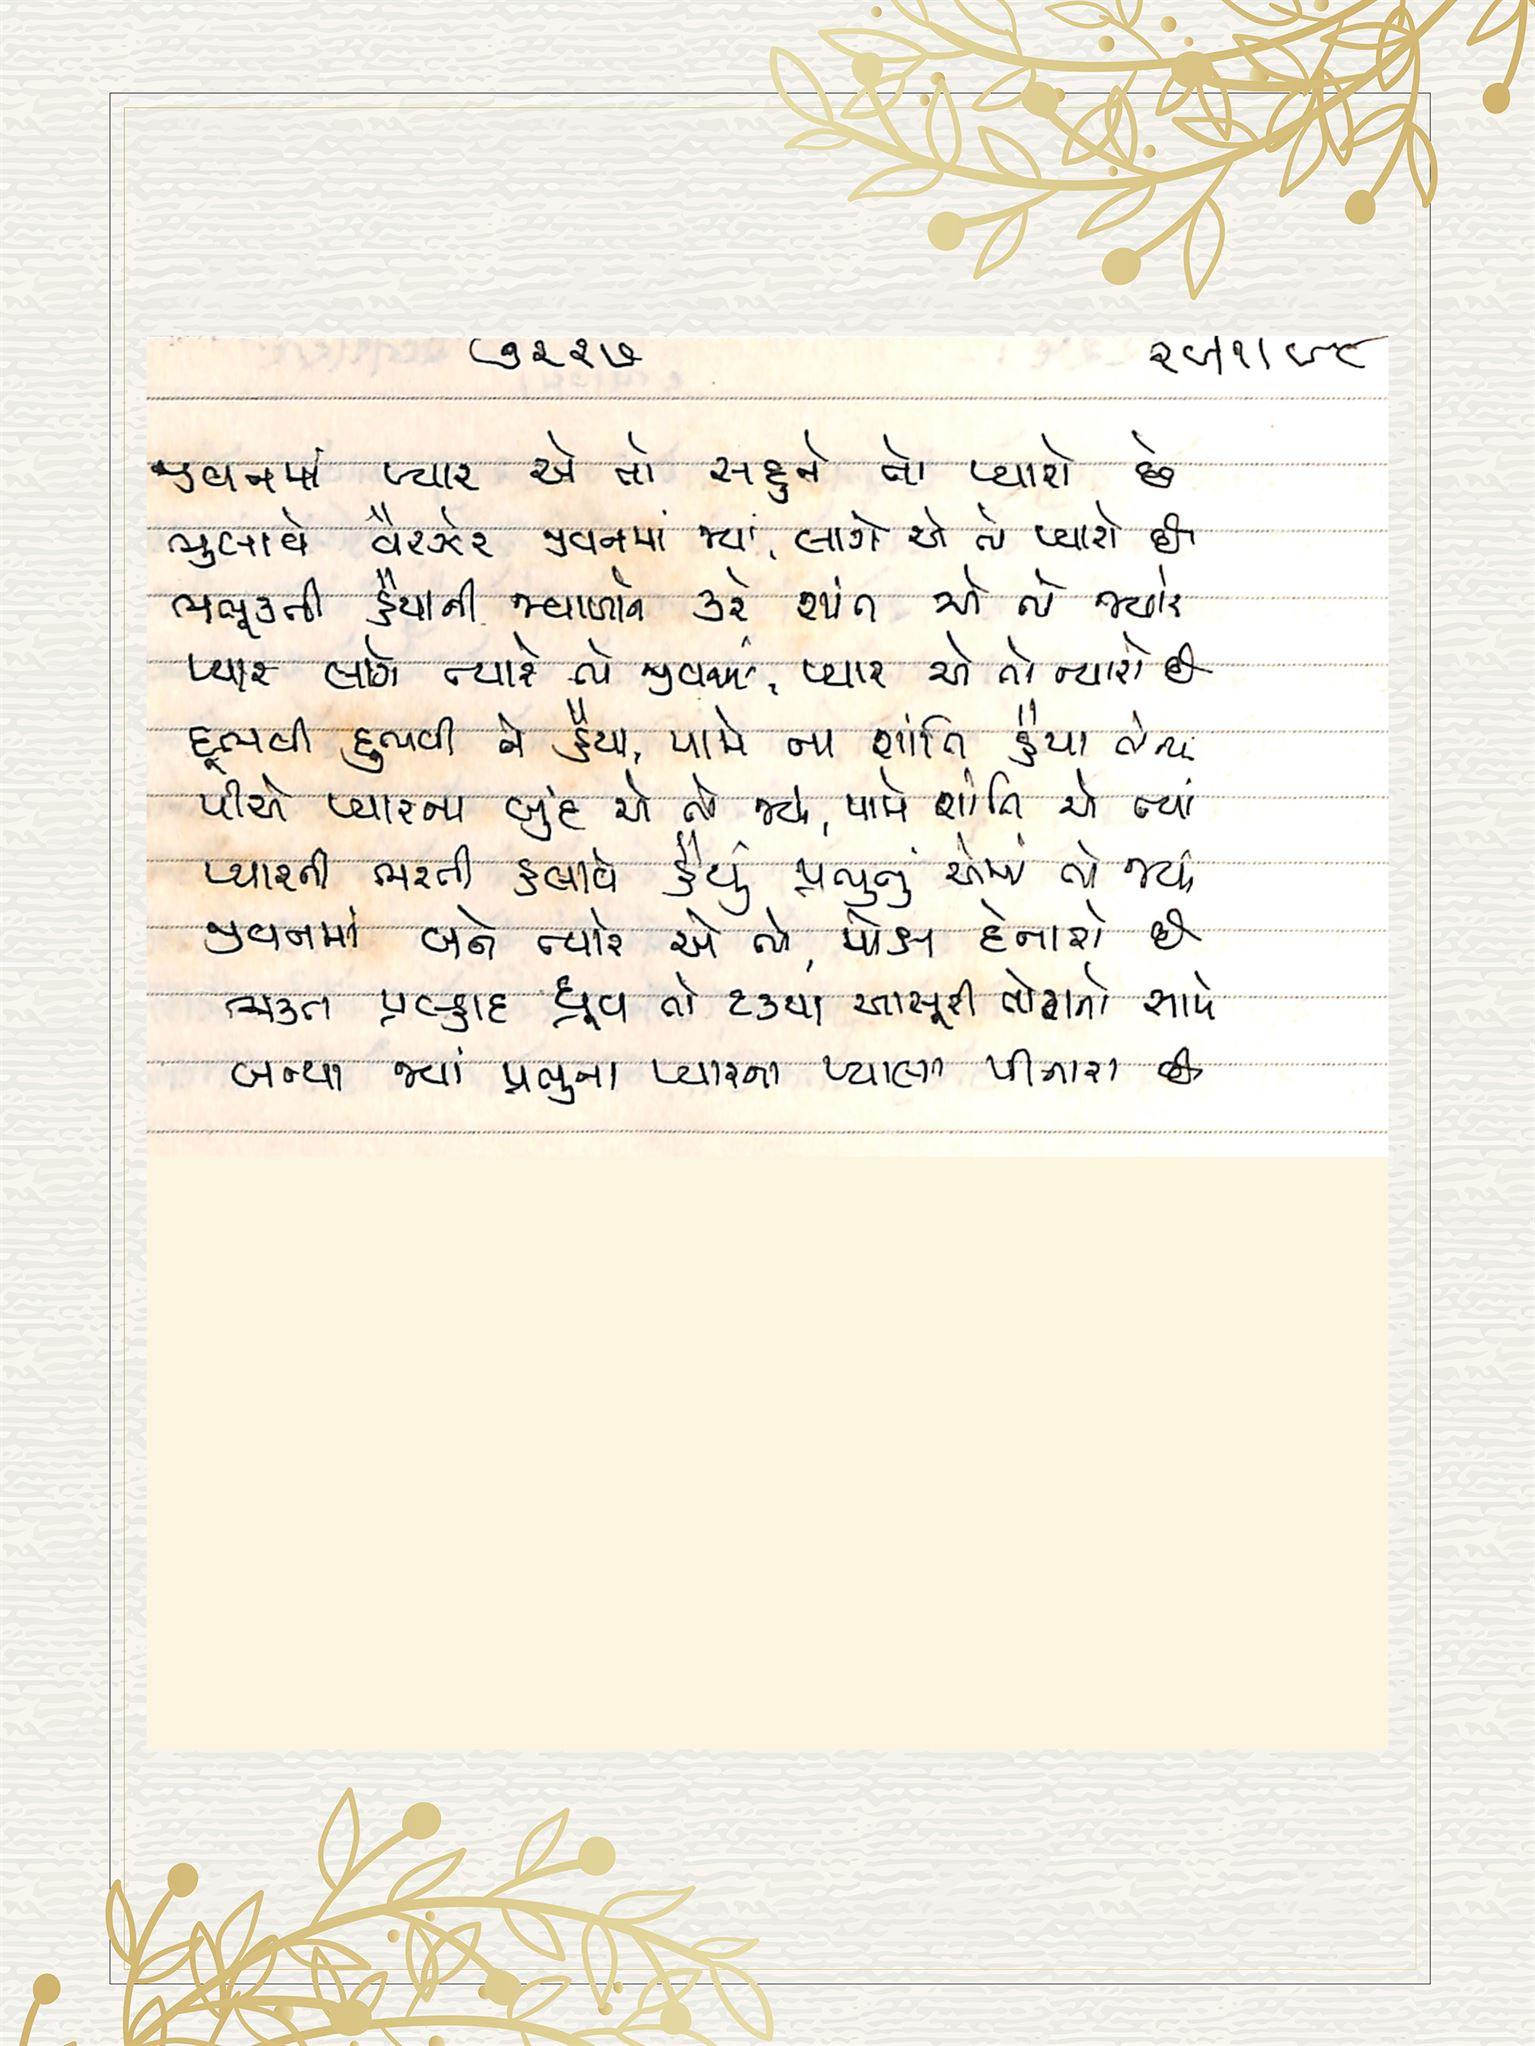 ૭૨૨૭ ૨૯|૧|૯૮
જીવનમાં પ્યાર એ તો સહુને તો પ્યારો છે
ભુલાવે વૈરઝેર જીવનમાં જ્યાં, લાગે એ તો પ્યારો છે
ભભૂકતી હૈયાની જ્વાળાને કરે શાંત એ તો જ્યારે
પ્યાર લાગે ત્યારે તો જીવનમાં, પ્યાર એ તો ન્યારો છે
દૂભવી દુભવી ને હૈયા, પામે ના શાંતિ હૈયા તો ત્યાં
પીએ પ્યારના બુંદ એ તો જ્યાં, પામે શાંતિ એ ત્યાં
પ્યારની ભરતી ફેલાવે હૈયું પ્રભુનું એમાં તો જ્યાં
જીવનમાં બને ત્યારે એ તો, મોક્ષ દેનારો છે
ભક્ત પ્રલ્હાદ ધ્રૂવ તો ટક્યા આસૂરી તોફાનો સામે
બન્યા જ્યાં પ્રભુના પ્યારના પ્યાલા પીનારા છે